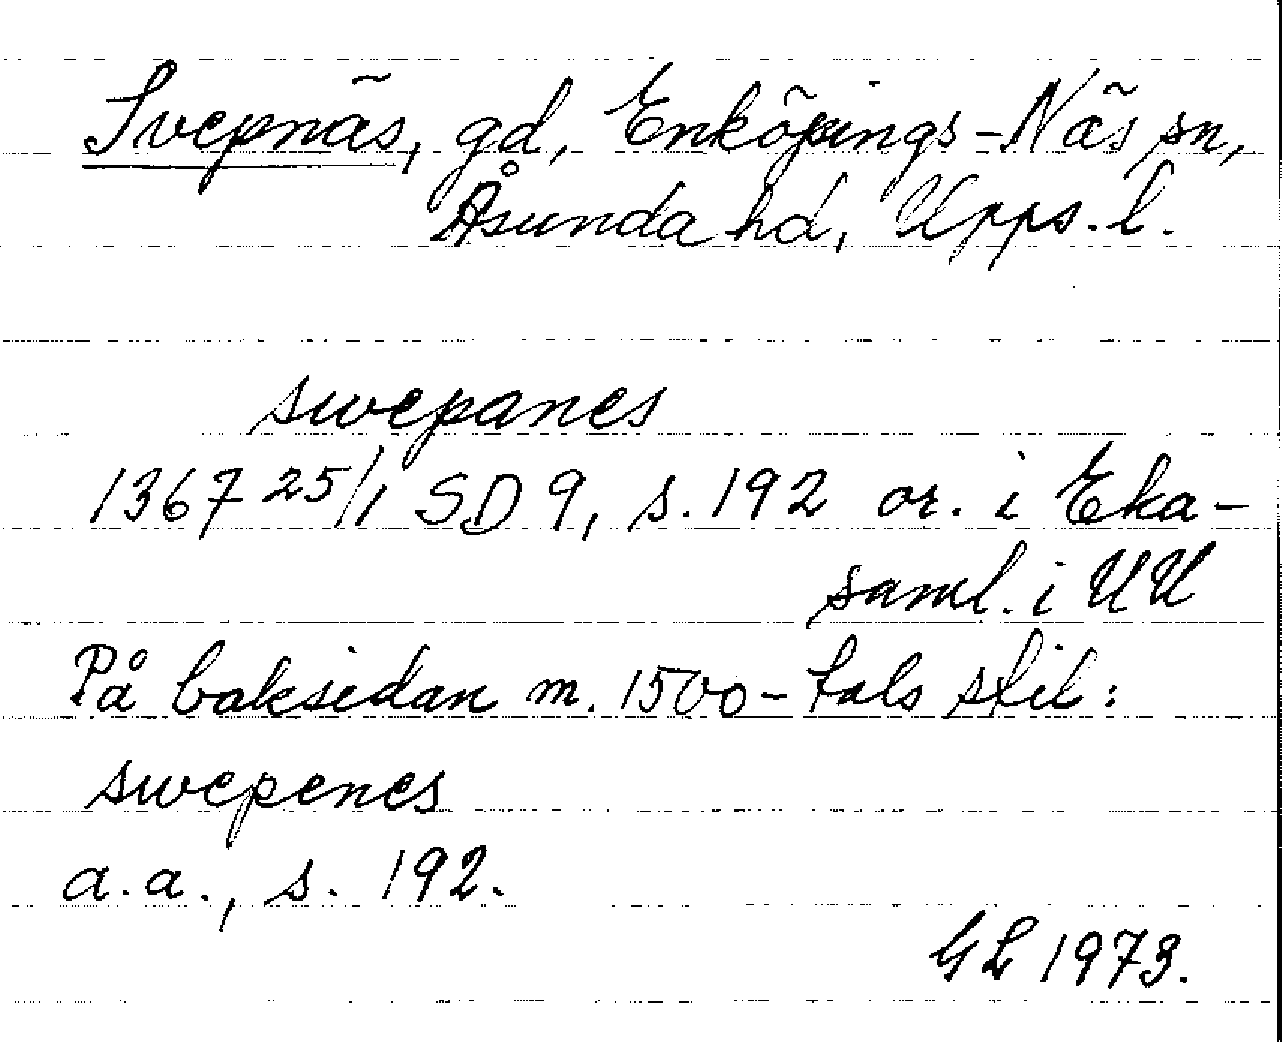 Svepnäs, gd, Enköpings-Näs sn,
Åsunda hd, Upps. l.
swepanes
1367 25/1 SD 9, s. 192 or. i Eka-
saml. i UU
På baksidan m. 1500-tals stil:
swepenes
a.a., s. 192.
GL 1973.